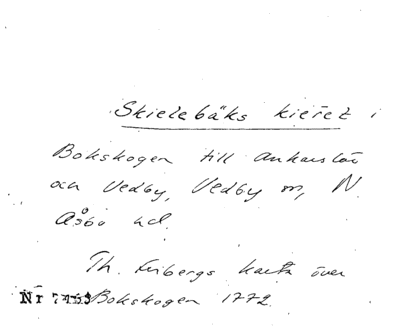 Skielebäks kieret i
Bokskogen till
och Vedby, Vedby sn, N.
Åsbo hd.
Th. Fribergs karta över
Nr 7453 Bokskogen 1772.